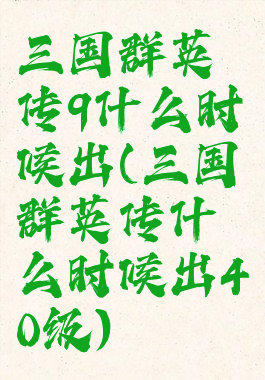 三国群英
传9什么时
候出(三国
群英传什
么时候出4
0级)